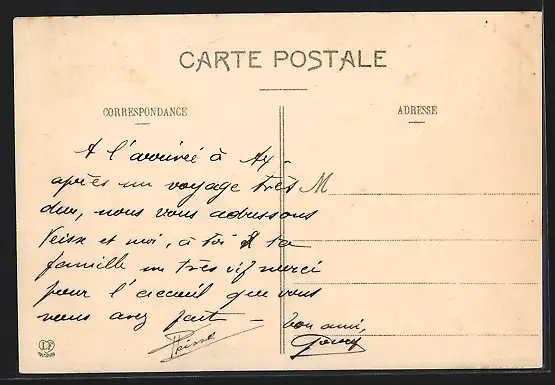 CARTE POSTALE
CORRESPONDANCE
ADRESSE
A l'arrivée à Ax -
après un voyage très
dur, nous vous adressons
et moi, à toi & ta
famille un très vif merci
pour l'accueil que vous
nous avez fait - bon ami,
M